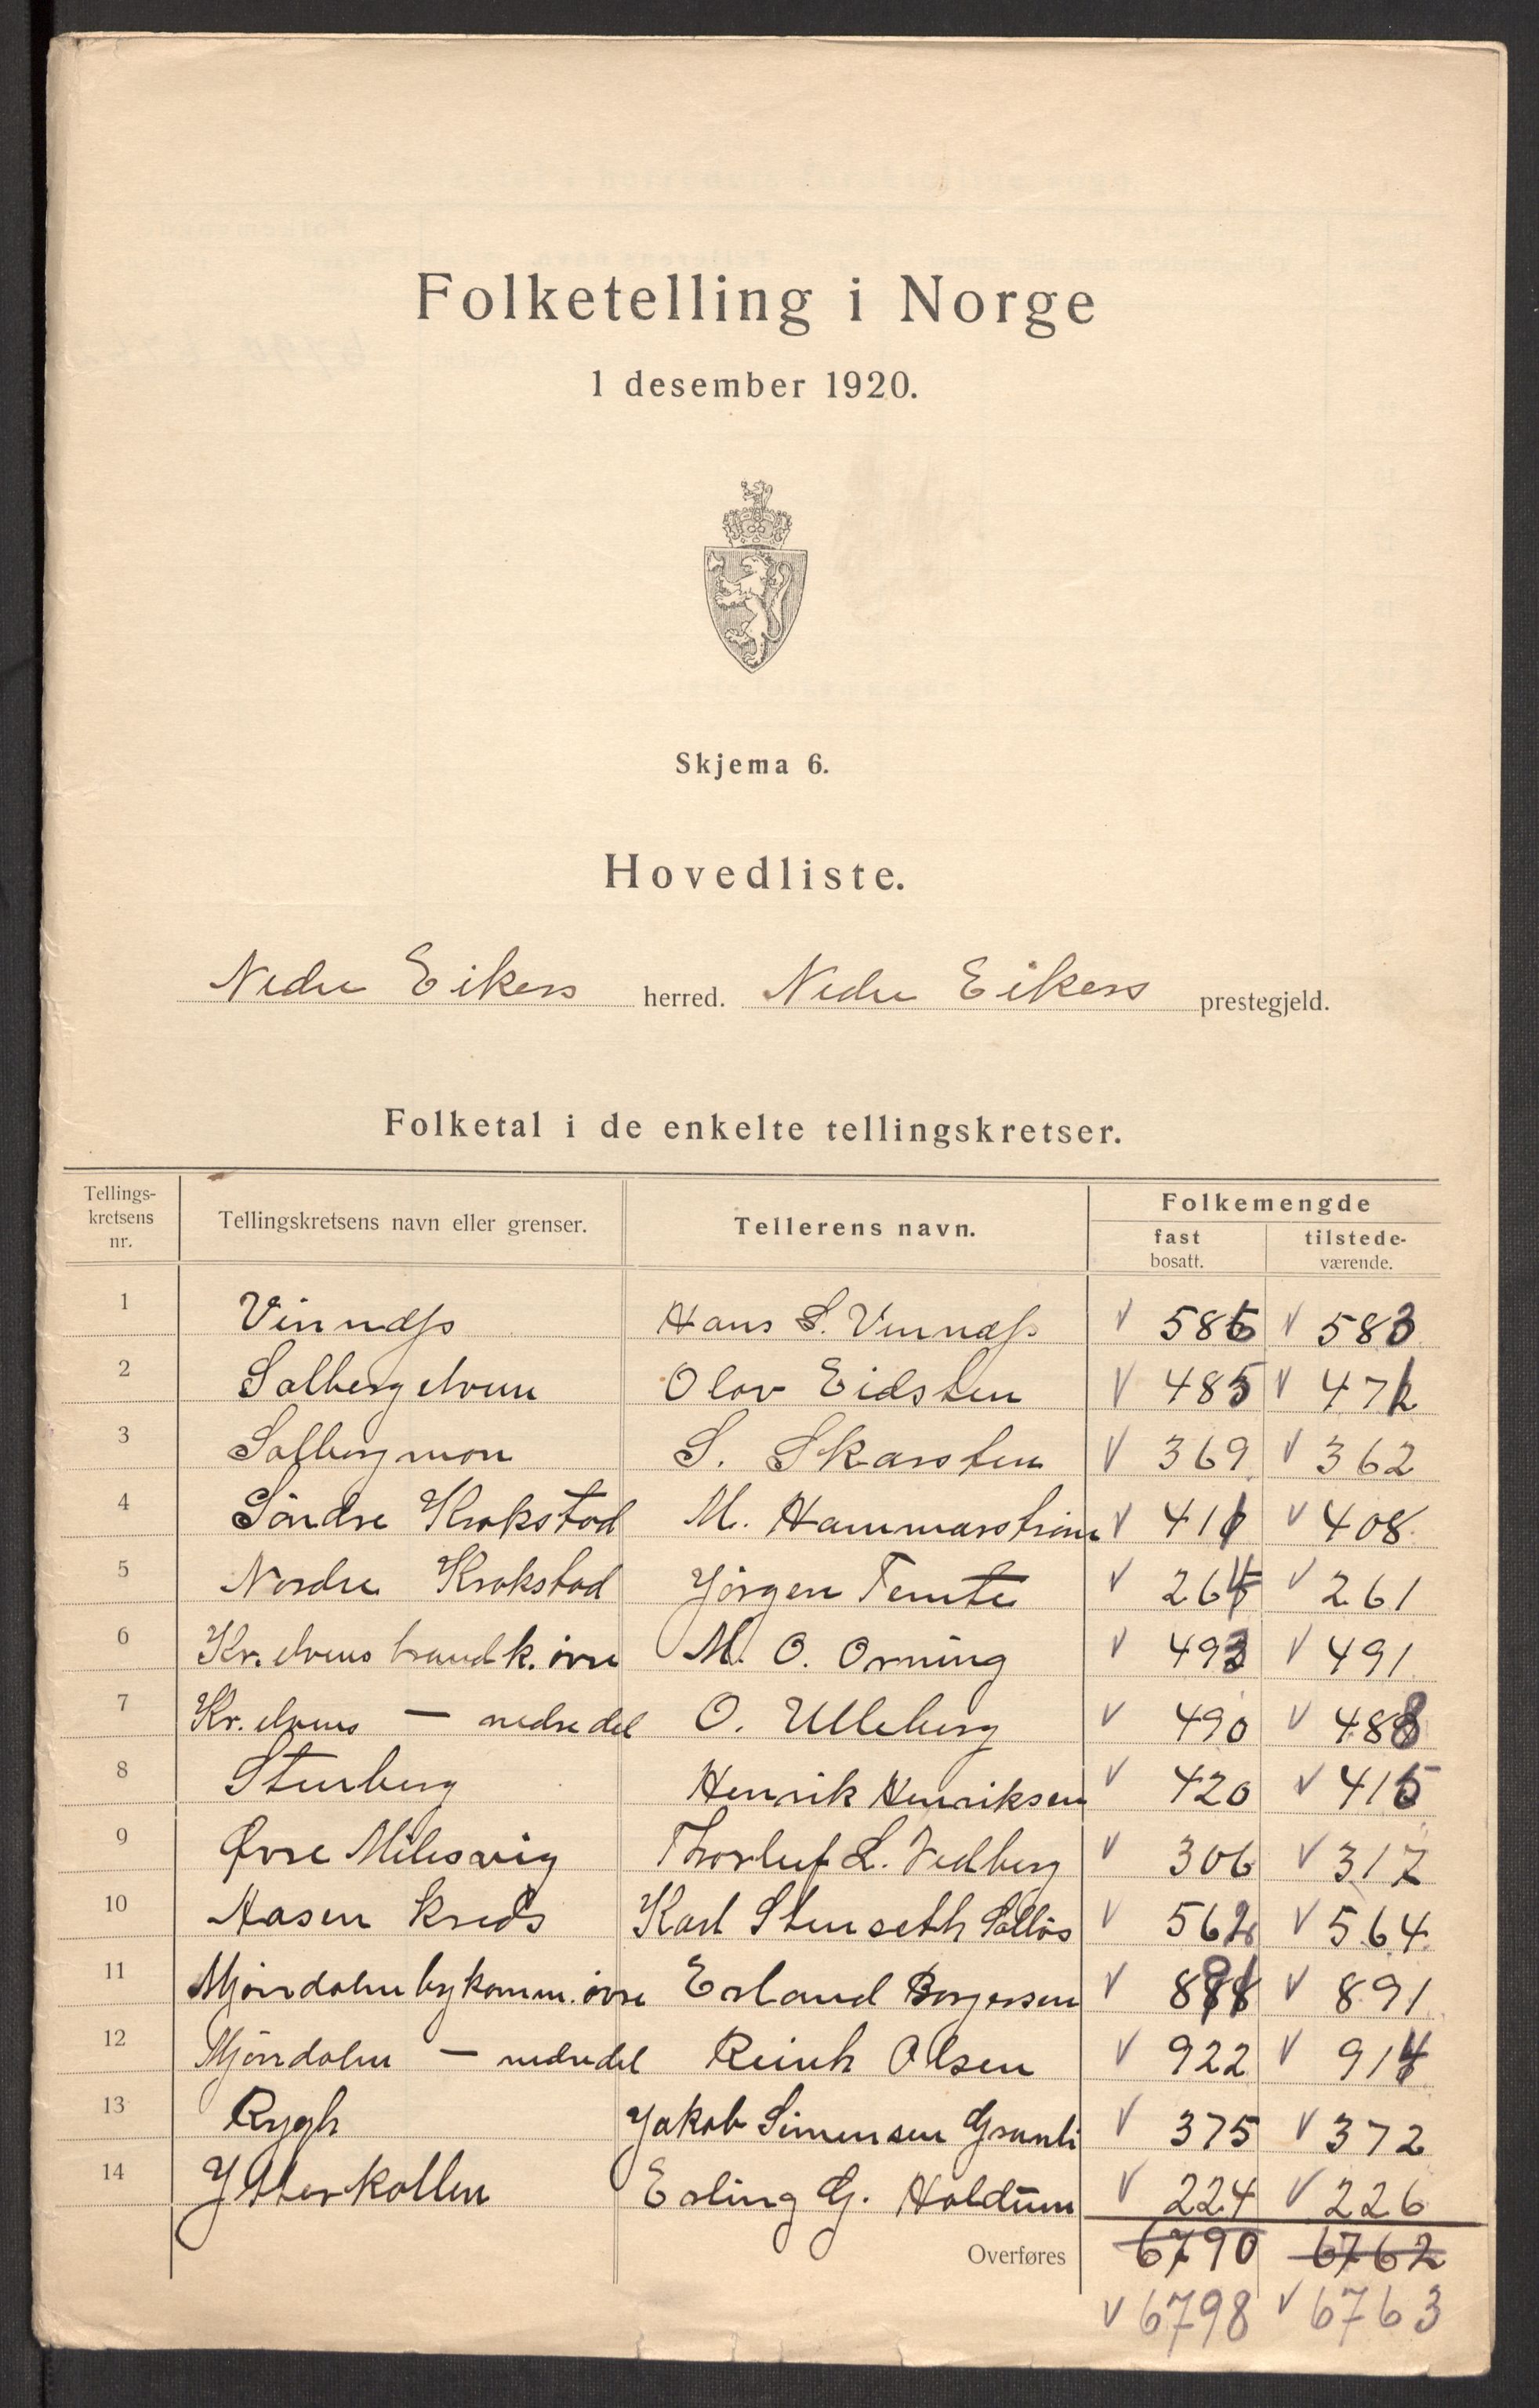 Folketelling i Norge
1 desember 1920.
Skjema 6.
Hovedliste.
Nedre Eikers herred. Nedre Eikers prestegjeld.
Folketal i de enkelte tellingskretser.
Tellings-kretsens nr. Tellingskretsens navn eller grenser. Tellerens navn. Folkemengde
fast bosatt. tilstede-værende.
1 Vinnæss Hans S. Vinnæss v 586 v 583
2 Solbergelven Olav Eidsten v 485 v 472
3 Solbergmoen S. Skarsten v 369 v 362
4 Söndre Krokstad M. Hammarström v 411 v 408
5 Nordre Krokstad Jörgen Temte v 264 v 261
6 Kr. elvens brandk. övre M. O. Orning v 493 v 491
7 Kr. elvens — nedre del O. Ulleberg v 490 v 488
8 Stenberg Henrik Henriksen v 420 v 415
9 Øvre Milesvig Thorleif L. Vedberg v 306 v 317
10 Aasen kreds Karl Stenseth Solløs v 562 v 564
11 Mjöndalen bykomm. övre Erland Borgersen v 891 v 891
12 Mjöndalen — nedre del Reinh Olsen v 922 v 914
13 Rygh Jakob Simensen Granli v 375 v 372
14 Ytterkollen Erling G. Holdum v 224 v 226
Overføres 6790 6762
v 6798 v 6763